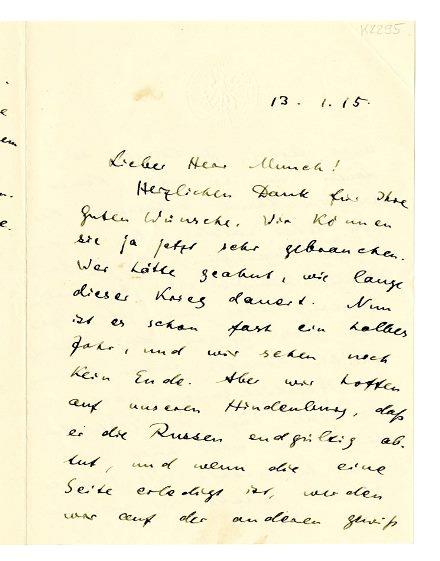 K2295
13. 1. 15.
Lieber Herr Munch!
Herzlichen Dank für Ihre
guten Wünsche. Wir können
sie ja jetzt sehr gebrauchen.
Wer hätte geahnt, wie lange
dieser Krieg dauert. Nun
ist es schon fast ein halbes
Jahr, und wir sehen noch
kein Ende. Aber wir hoffen
auf unseren Hindenburg, daß
er die Russen endgültig ab-
tut, und wenn die eine
Seite erledigt ist, werden
wir auf der anderen gewiß